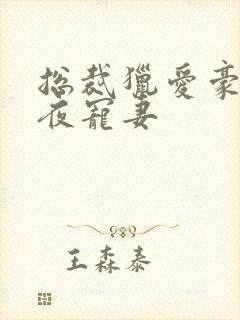 总裁猎爱豪
夜宠妻
王森泰